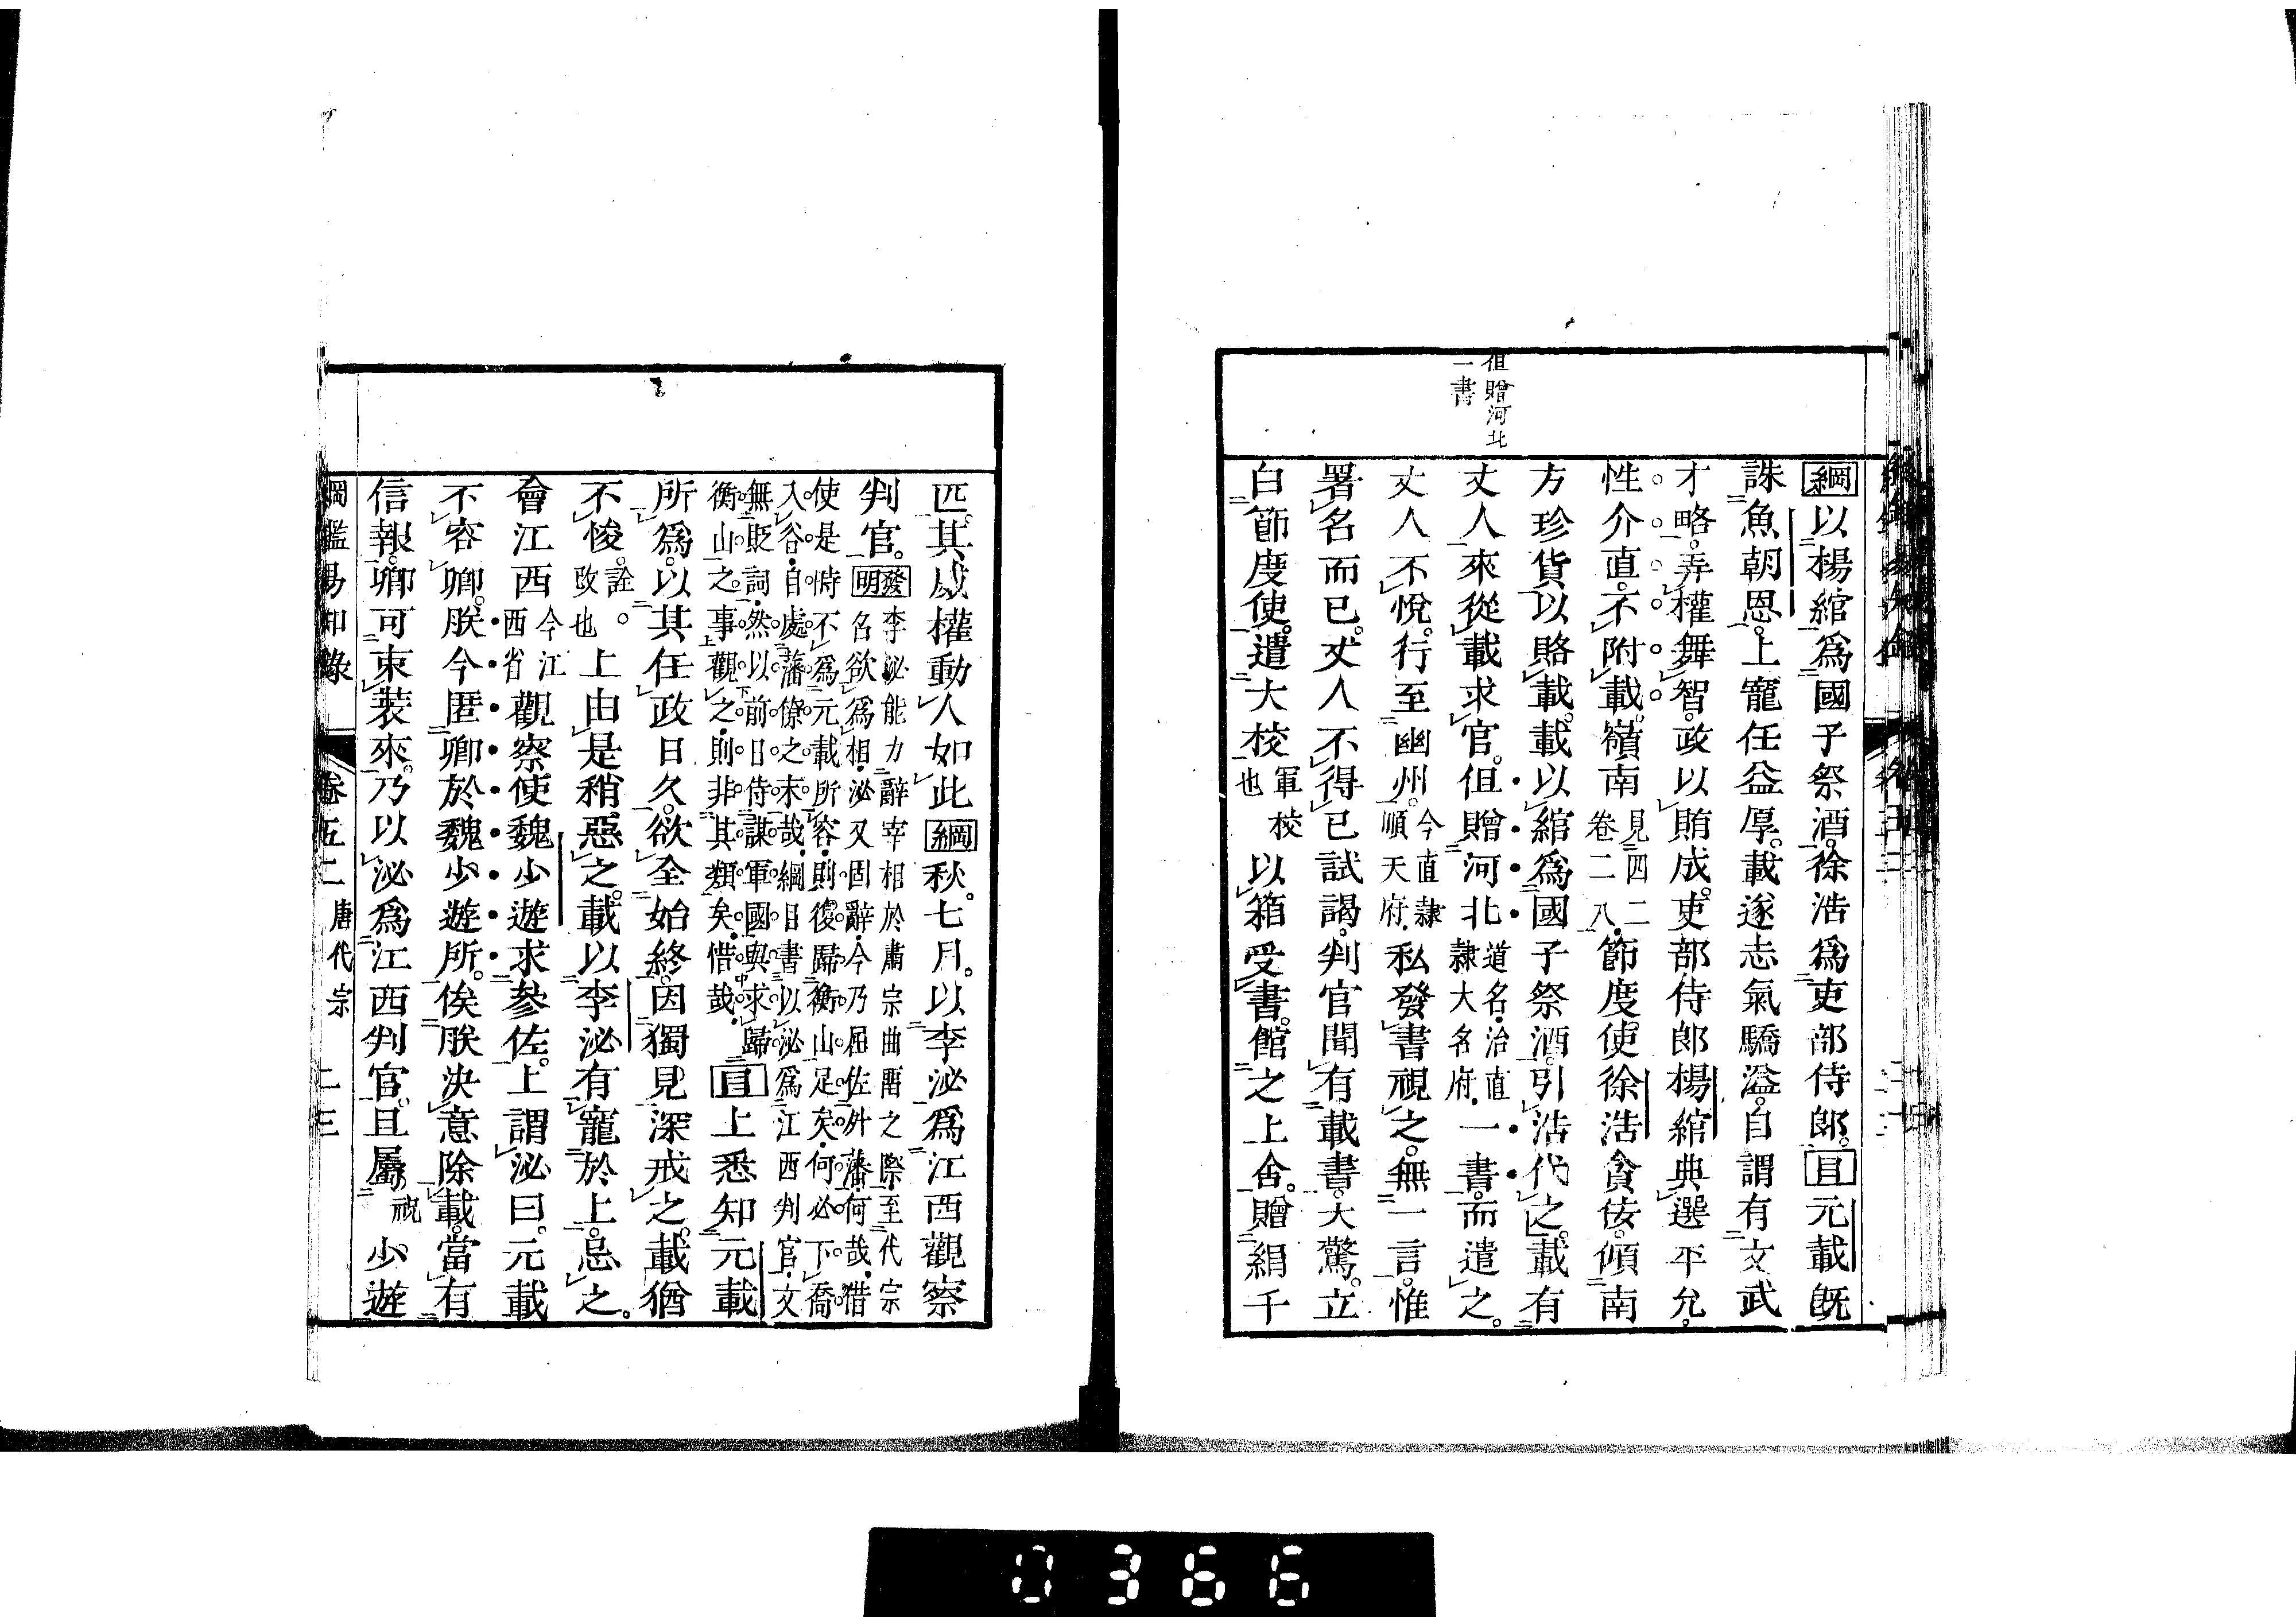 但贈河北
一書
綱以楊綰爲國子祭酒。徐浩爲吏部侍郎。目元載既
誅魚朝恩。上寵任益厚。載遂志氣驕溢。自謂有文武
才略。弄權舞智。政以賄成。吏部侍郎楊綰典選平允。
性介直。不附載。嶺南見四二卷二八節度使徐浩貪佞。傾南
方珍貨以賂載。載以綰爲國子祭酒。引浩代之。載有
丈人來從載求官。但贈河北道名。治直隸大名府。一書。而遣之。
丈人不悅。行至幽州。今直隸順天府。私發書視之。無一言。惟
署名而已。丈人不得已試謁。判官聞有載書。大驚。立
白節度使。遣大校軍校也以箱受書。館之上舍。贈絹千
匹。其威權動人如此綱秋。七月。以李泌爲江西觀察
判官。發明李泌能力辭宰相於肅宗曲留之際。至代宗
名欲爲相。泌又固辭。今乃屈佐外藩。何哉。惜
使是時不爲元載所容。則復歸衡山足矣。何必下喬
入谷。自處藩僚之末哉。綱目書以泌爲江西判官。文
無貶詞。然以前日侍謀軍國與求歸
衡山之事觀之。則非其類矣。惜哉。目上悉知元載
所爲。以其任政日久。欲全始終。因獨見深戒之。載猶
不悛。詮。改也。上由是稍惡之。載以李泌有寵於上。忌之。
會江西今江西省觀察使魏少遊求參佐。上謂泌曰。元載
不容卿。朕今匿卿於魏少遊所。俟朕決意除載。當有
信報。卿可束裝來。乃以泌爲江西判官。且屬祝少遊
綱鑑易知錄 卷五二 唐代宗 二三
0366